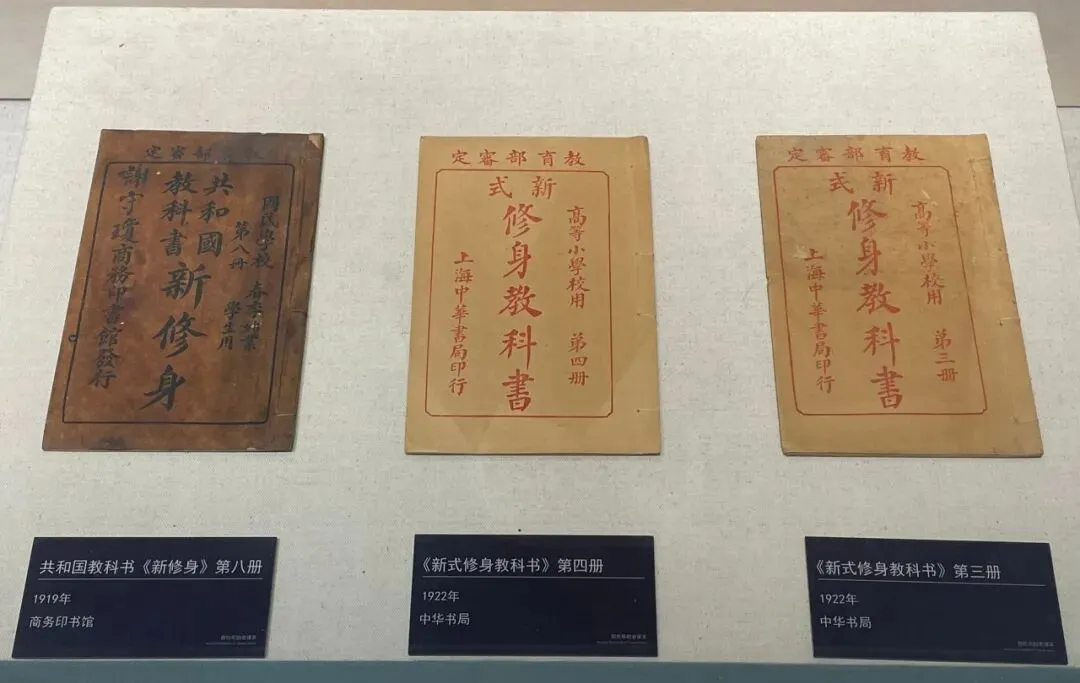 教育部審定
國民學校
春季始業
第八冊
學生用
共和國
教科書
新修身
商務印書館發行
教育部審定
高等小學校用
第四冊
新式
修身教科書
上海中華書局印行
教育部審定
高等小學校用
第三冊
新式
修身教科書
上海中華書局印行
共和国教科书《新修身》第八册
1919年
商务印书馆
《新式修身教科书》第四册
1922年
中华书局
《新式修身教科书》第三册
1922年
中华书局